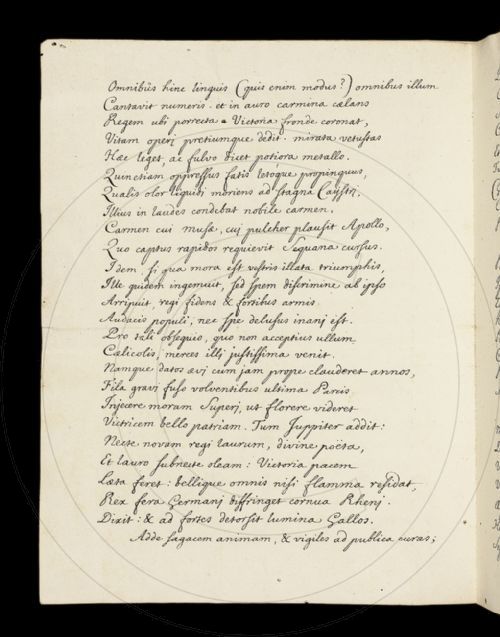 Omnibus hinc linguis (quis enim modus?) omnibus illum
Cantavit numeris. et in auro carmina cælans
Regem ubi porrecta Victoria fronde coronat,
Vitam operj pretiumque dedit. mirata vetustas
Hæc leget, ac fulvo dicet potiora metallo.
Quinetiam oppressus fatis letóque propinquus,
Qualis olor liquidi moriens ad stagna Caystrj,
Illius in laudes condebat nobile carmen.
Carmen cui musæ, cuj pulcher plausit Apollo,
Quo captus rapidos requievit Sequana cursus.
Idem si qua mora est vestris illata triumphis,
Ille quidem ingemuit, sed spem discrimine ab ipso
Arripuit regi fidens & fortibus armis
Audacis populi, nec spe delusus inanj est.
Pro tali obsequio, quo non acceptius ullum
Cælicolis, merces illj justissima venit.
Namque datos ævj cum jam prope clauderet annos,
Fila gravj fuso volventibus ultima Parcis
Injecere moram Superj, ut florere videret
Victricem bello patriam. Tum Juppiter addit:
Necte novam regi laurum, divine poëta,
Et lauro subnecte oleam: Victoria pacem
Læta feret: bellique omnis nisi flamma residat,
Rex fera Germanj diffringet cornua Rhenj.
Dixit: & ad fortes detorsit lumina Gallos.
Adde sagacem animam, & vigiles ad publica curas;